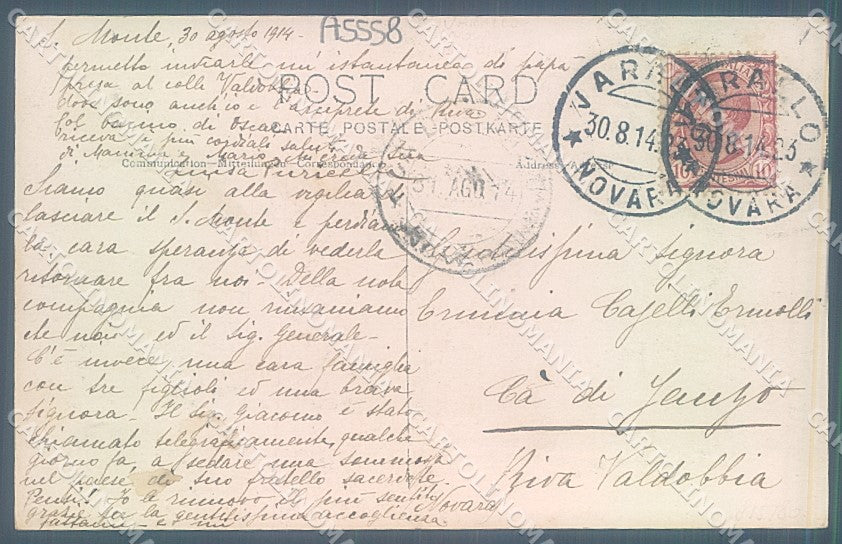 A5558
Monte, 30 agosto 1914 -
permetto inviarle un' istantanea di papà
presa al colle Valdobbia
dove sono anch'io e l'arciprete di Riva
Col bacino di Oscar
riceva i più cordiali saluti
di Mamma e Mario
POST CARD
CARTE POSTALE - POSTKARTE
Communication - Mittheilung - Correspondance
Address
Siamo quasi alla vigilia di
lasciare il S. Monte e perdiamo
la cara speranza di vederla
ritornare fra noi. Della nota
compagnia non rimaniamo
che noi ed il Sig. Generale -
C'è invece una cara famiglia
con tre figlioli ed una brava
Signora - Il Sig. Giacomo è stato
chiamato telegraficamente, qualche
giorno fa, a sedare una sommossa
nel paese di suo fratello sacerdote.
Pensi! Io le rinnovo i più sentiti
grazie per la gentilissima accoglienza
fattami -
Novara
VARALLO
30.8.14.23
NOVARA
VARALLO
30.8.14.23
NOVARA
31. AGO. 14
10 10
Gentilissima Signora
Erminia Cajelli Ermolli
Cà di Janzo
Riva Valdobbia
CARTOLINOMANIA